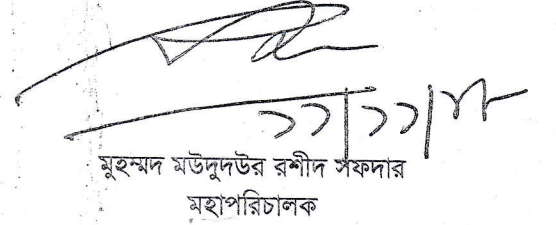 ১১/১১/২৫
মুহম্মদ মউদুদউর রশীদ সফদার
মহাপরিচালক